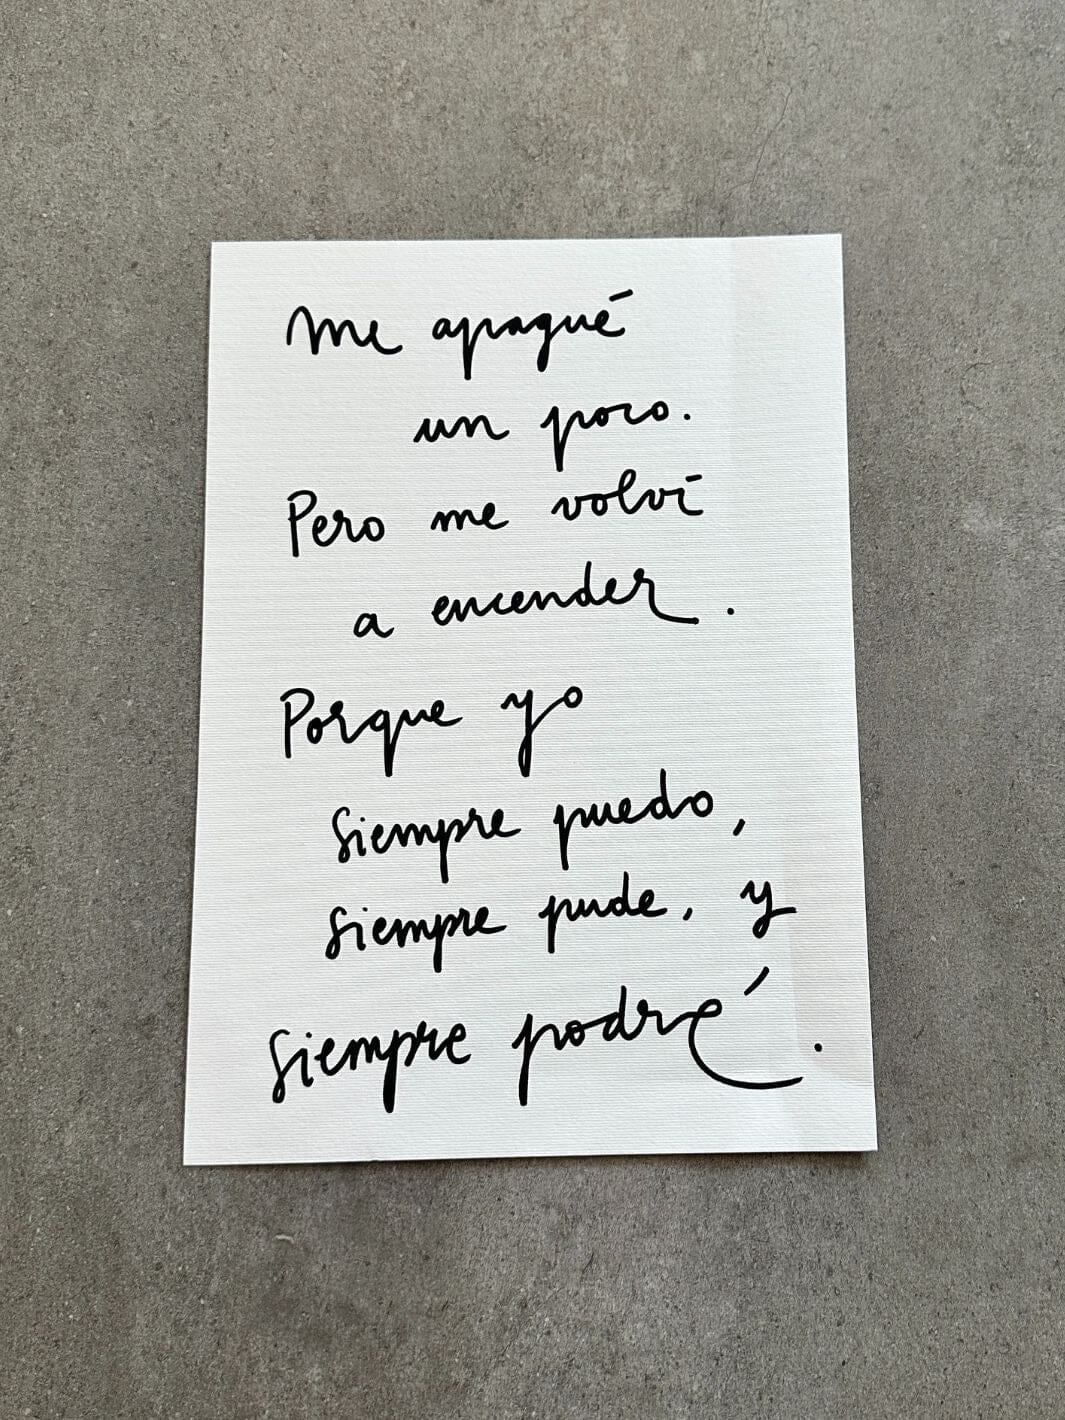 Me apagué
un poco.
Pero me volví
a encender.
Porque yo
siempre puedo,
siempre pude, y
siempre podré.